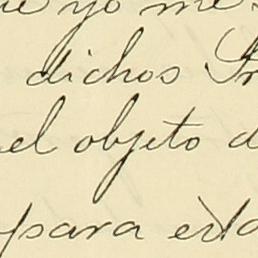 yo me
dichos
el objeto d
para esta